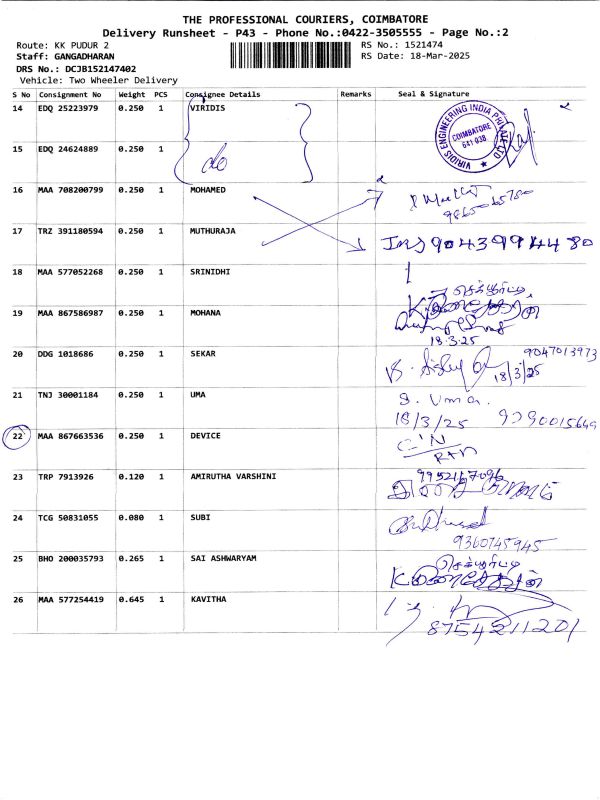 THE PROFESSIONAL COURIERS, COIMBATORE
Delivery Runsheet - P43 - Phone No.:0422-3505555 - Page No.:2
Route: KK PUDUR 2
RS No.: 1521474
Staff: GANGADHARAN
RS Date: 18-Mar-2025
DRS No.: DCJB152147402
Vehicle: Two Wheeler Delivery
S No Consignment No Weight PCS Consignee Details Remarks Seal & Signature
14 EDQ 25223979 0.250 1 VIRIDIS
VIRIDIS ENGINEERING INDIA PRIVATE LTD
COIMBATORE
641 038
15 EDQ 24624889 0.250 1 do
16 MAA 708200799 0.250 1 MOHAMED
17 TRZ 391180594 0.250 1 MUTHURAJA
18 MAA 577052268 0.250 1 SRINIDHI
19 MAA 867586987 0.250 1 MOHANA
18.3.25
20 DDG 1018686 0.250 1 SEKAR 9047013973
18/3/25
21 TNJ 30001184 0.250 1 UMA S. Uma.
18/3/25 9290015649
22 MAA 867663536 0.250 1 DEVICE
23 TRP 7913926 0.120 1 AMIRUTHA VARSHINI
24 TCG 50831055 0.080 1 SUBI
9360745945
25 BHO 200035793 0.265 1 SAI ASHWARYAM
26 MAA 577254419 0.645 1 KAVITHA
8754211201